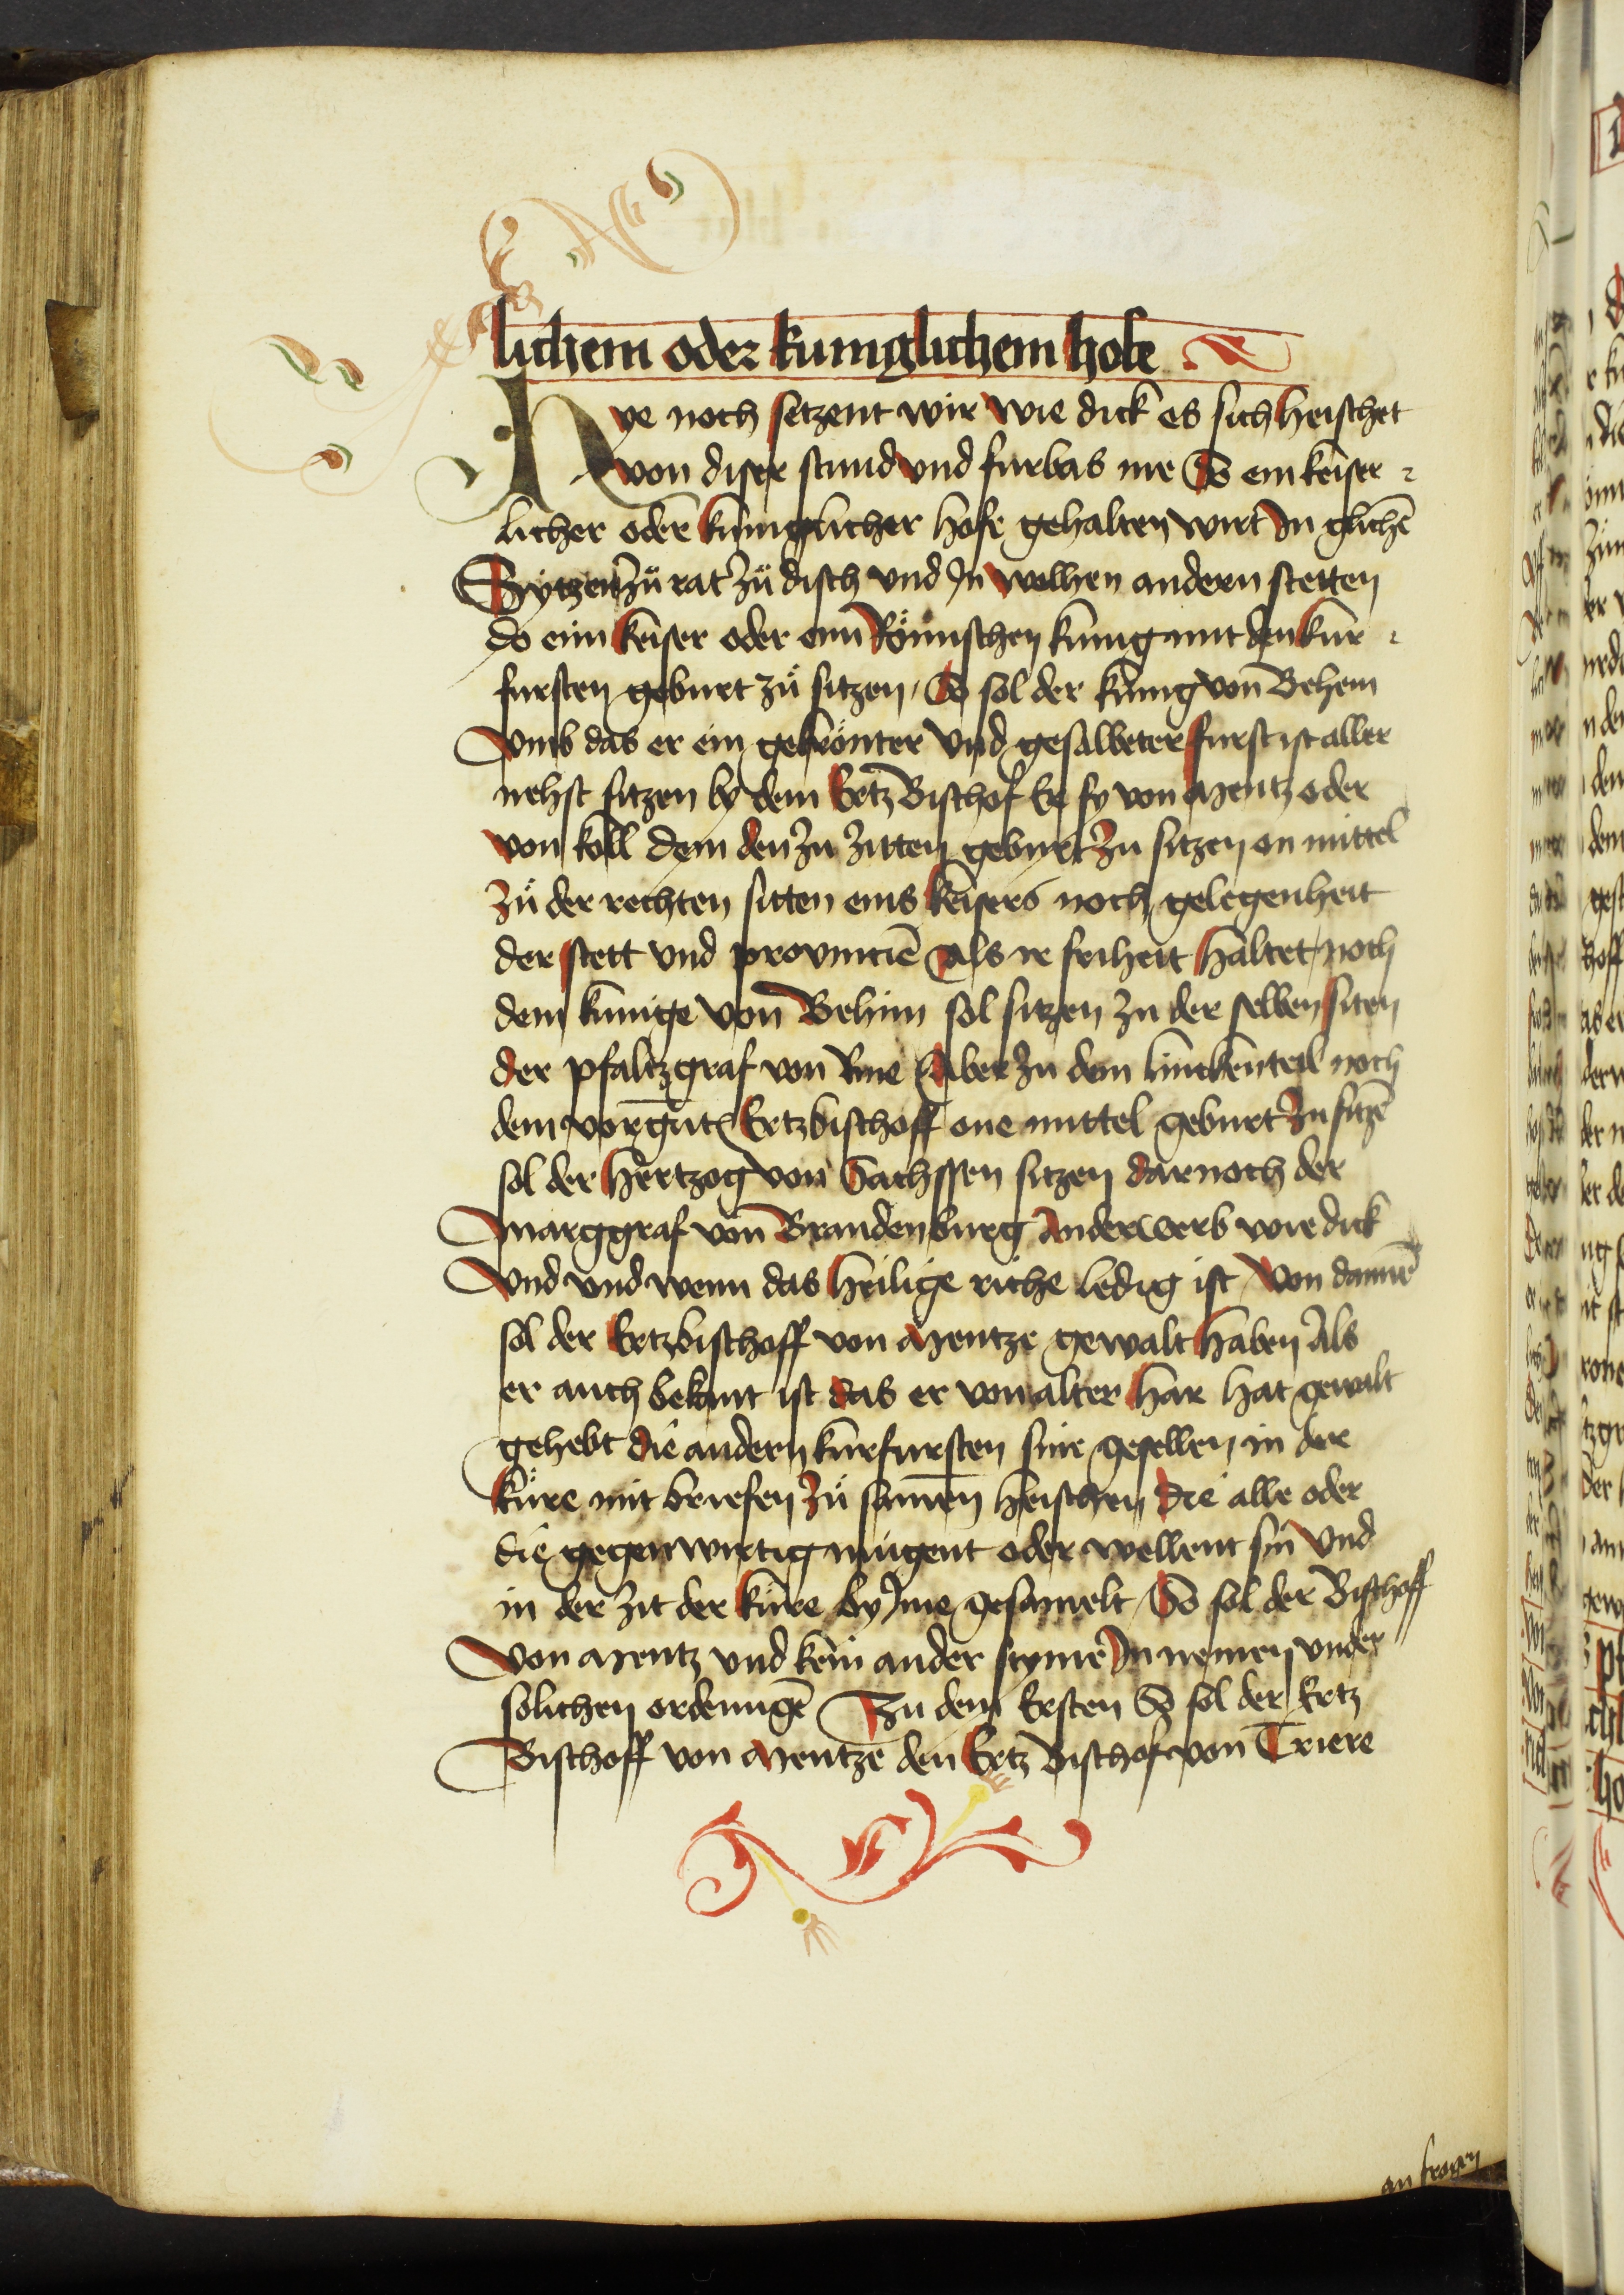 lichem oder kuniglichem hofe
Hye noch setzent wir wie dick es sich heischet
von diser stund vnd furbas me So ein keiser⸗
licher oder kuniglicher hofe gehalten wirt Jn glichē
Sytzen zů rat zů disch vnd Jn welhen andern stetten
do eim keiser oder eim Römischen kunig mit den kur⸗
fursten geburt zů sitzen / So sol der kunig von Behem
vmb das er ein gekrönter vnd gesalbeter furst ist aller
nehst sitzen by dem Ertz Bischof Er sy von Mentz oder
von köll dem den zu zitten geburt zu sitzen on mittel
Zů der rechten sitten eins keisers noch gelegenheit
der stett vnd prouincie Als ir friheit haltet / noch
dem kunige von Behim sol sitzen zu der selben siten
der pfaltzgraf von Rine Aber zu dem lincken teil noch
dem vorgñten Ertzbischoff one mittel geburt zu sitzē
sol der hertzog von Sachssen sitzen darnoch der
Marggraf von Brandenburg Anderwerb wie dick
Vnd vnd wenn das heilige riche ledig ist / von dannē
sol der Ertzbischoff von Mentze gewalt haben Als
er auch bekant ist das er von alter har hat gewalt
gehebt die andern kurfursten sine gesellen in der
kure mit briefen zů samen heischen die alle oder
die gegenwirtig mugent oder wellent sin vnd
in der zit der kure by Jme gesamelt / So sol der Bischoff
Von Mentz vnd kein ander styme Jn nemen vnder
solichen ordenungē Zu dem Ersten So sol der Ertz
Bischoff von Mentze den Ertz Bischof von Triere
an frogen